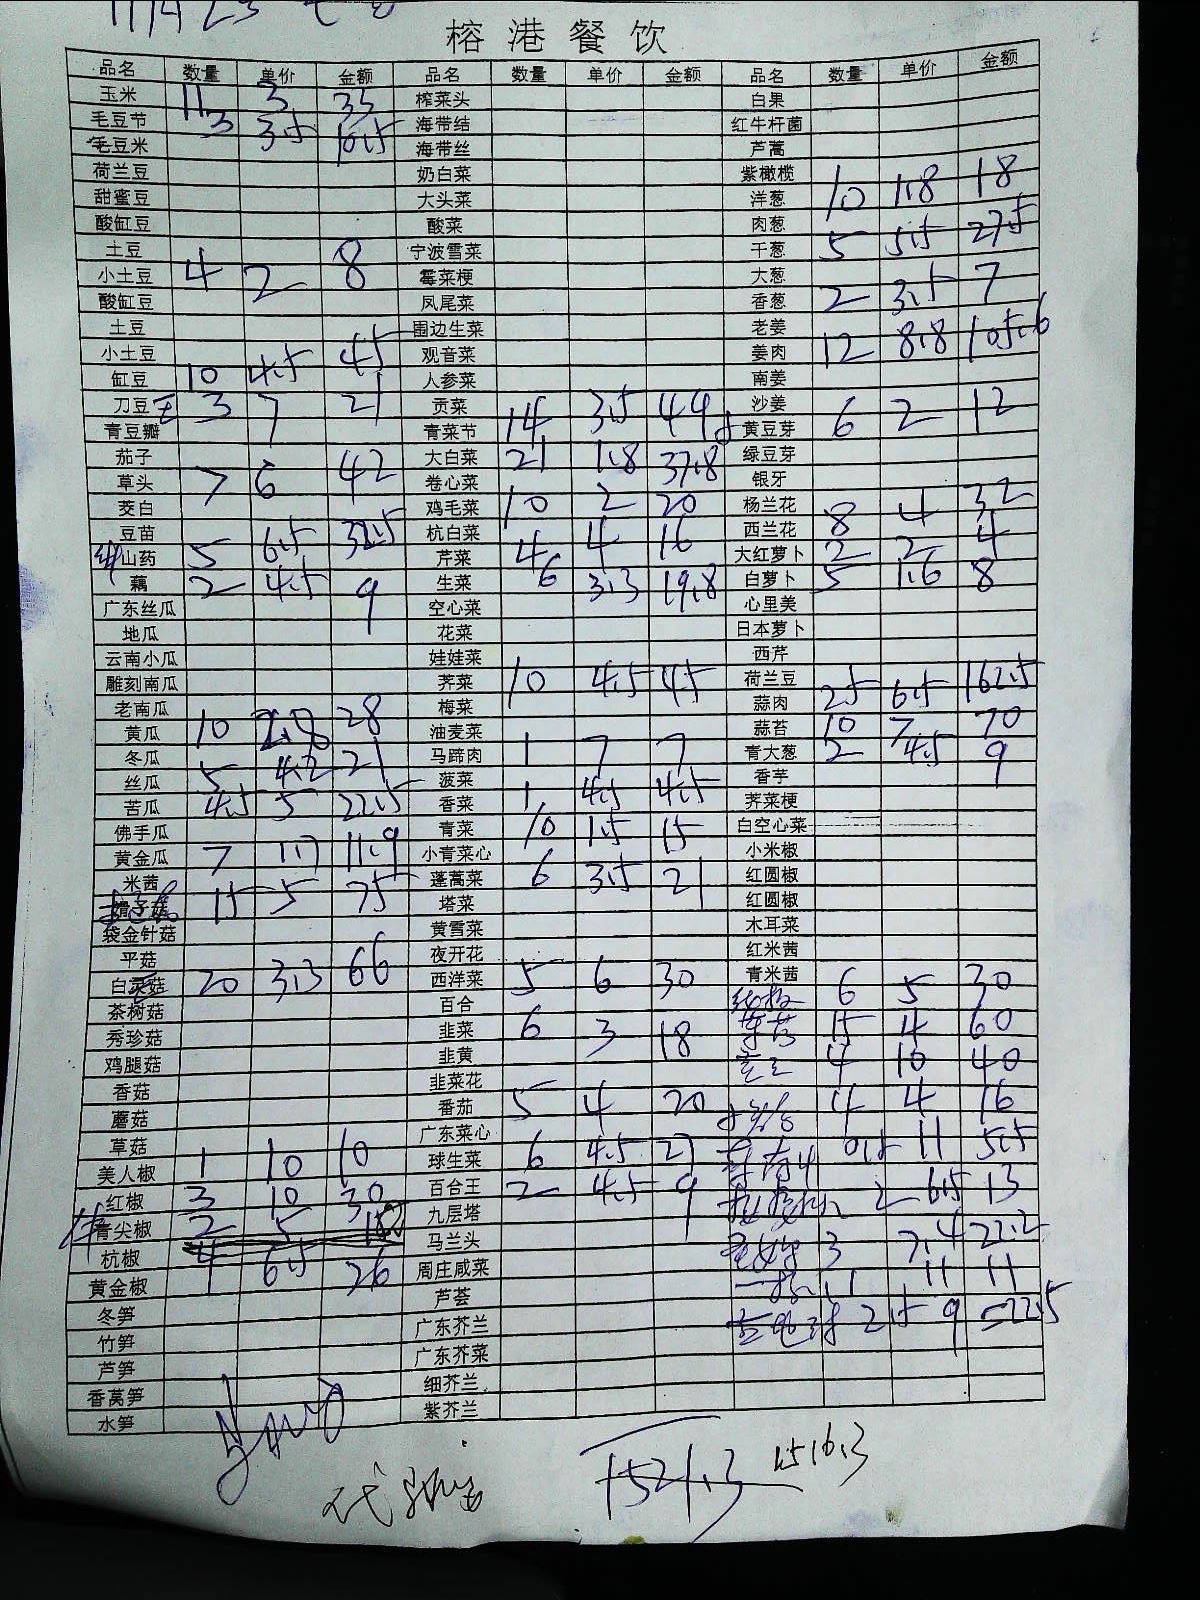 榕港餐饮
品名 数量 单价 金额 品名 数量 单价 金额 品名 数量 单价 金额
玉米 11 3 33 榨菜头 白果
毛豆节 3 3.5 10.5 海带结 红牛杆菌
毛豆米 海带丝 芦蒿
荷兰豆 奶白菜 紫橄榄
甜蜜豆 大头菜 洋葱 10 1.8 18
酸缸豆 酸菜 肉葱
土豆 宁波雪菜 干葱 5 5.5 27.5
小土豆 4 2 8 霉菜梗 大葱
酸缸豆 凤尾菜 香葱 2 3.5 7
土豆 围边生菜 老姜
小土豆 观音菜 姜肉 12 8.8 105.6
缸豆 10 4.5 45 人参菜 南姜
刀豆 3 7 21 贡菜 沙姜
青豆瓣 青菜节 14 3.5 49 黄豆芽 6 2 12
茄子 大白菜 21 1.8 37.8 绿豆芽
草头 7 6 42 卷心菜 银牙
茭白 鸡毛菜 10 2 20 杨兰花
豆苗 杭白菜 4 4 16 西兰花 8 4 32
山药 5 6.5 32.5 芹菜 大红萝卜 2 2 4
藕 2 4.5 9 生菜 6 3.3 19.8 白萝卜 5 1.6 8
广东丝瓜 空心菜 心里美
地瓜 花菜 日本萝卜
云南小瓜 娃娃菜 西芹
雕刻南瓜 荠菜 10 4.5 45 荷兰豆
老南瓜 梅菜 蒜肉 25 6.5 162.5
黄瓜 10 2.8 28 油麦菜 蒜苔 10 7 70
冬瓜 马蹄肉 1 7 7 青大葱 2 4.5 9
丝瓜 5 4.2 21 菠菜 香芋
苦瓜 4.5 5 22.5 香菜 1 4.5 4.5 荠菜梗
佛手瓜 青菜 10 1.5 15 白空心菜
黄金瓜 7 1.7 11.9 小青菜心 小米椒
米茜 蓬蒿菜 6 3.5 21 红圆椒
15 5 75 塔菜 红圆椒
袋金针菇 黄雪菜 木耳菜
平菇 夜开花 红米茜
白灵菇 20 3.3 66 西洋菜 5 6 30 青米茜
茶树菇 百合 6 5 30
秀珍菇 韭菜 6 3 18 15 4 60
鸡腿菇 韭黄 4 10 40
香菇 韭菜花
蘑菇 番茄 5 4 20 4 4 16
草菇 广东菜心
美人椒 1 10 10 球生菜 6 4.5 27 0.5 11 5.5
红椒 3 10 30 百合王 2 4.5 9 2 6.5 13
青尖椒 2 5 九层塔
杭椒 4 6.5 26 马兰头 3 7.4 22.2
黄金椒 周庄咸菜 1 11 11
冬笋 芦荟 2.5 9 22.5
竹笋 广东芥兰
芦笋 广东芥菜
香莴笋 细芥兰
水笋 紫芥兰
1521.3 1516.3